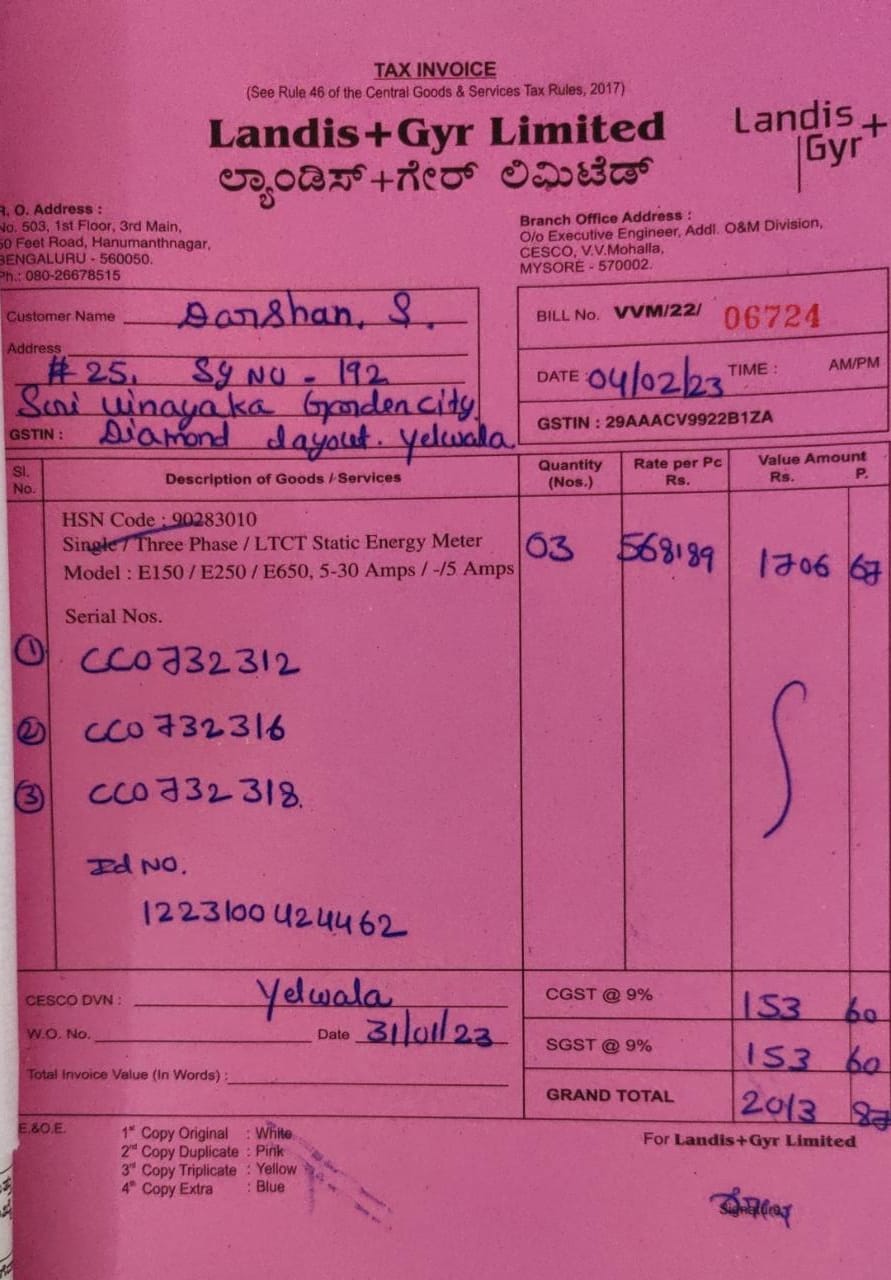 TAX INVOICE
(See Rule 46 of the Central Goods & Services Tax Rules, 2017)
Landis+Gyr Limited
ಲ್ಯಾಂಡಿಸ್+ಗೇರ್ ಲಿಮಿಟೆಡ್
Landis+
Gyr
R. O. Address :
No. 503, 1st Floor, 3rd Main,
50 Feet Road, Hanumanthnagar,
BENGALURU - 560050.
Ph.: 080-26678515
Branch Office Address :
O/o Executive Engineer, Addl. O&M Division,
CESCO, V.V.Mohalla,
MYSORE - 570002.
Customer Name Darshan. S.
Address
# 25, Sy NO - 192
Suri Vinayaka Garden city
GSTIN : Diamond layout. Yelwala
BILL No. VVM/22/ 06724
DATE : 04/02/23 TIME : AM/PM
GSTIN : 29AAACV9922B1ZA
Sl. No. Description of Goods / Services Quantity (Nos.) Rate per Pc Rs. Value Amount Rs. P.
HSN Code : 90283010
Single / Three Phase / LTCT Static Energy Meter 03 568189 1706 67
Model : E150 / E250 / E650, 5-30 Amps / -/5 Amps
Serial Nos.
① CC0732312
② CC0732316
③ CC0732318.
Id NO.
1223100424462
CESCO DVN : Yelwala
W.O. No. Date 31/01/23
Total Invoice Value (In Words) :
CGST @ 9% 153 60
SGST @ 9% 153 60
GRAND TOTAL 2013 87
E.&O.E.
1st Copy Original : White
2nd Copy Duplicate : Pink
3rd Copy Triplicate : Yellow
4th Copy Extra : Blue
For Landis+Gyr Limited
Signature